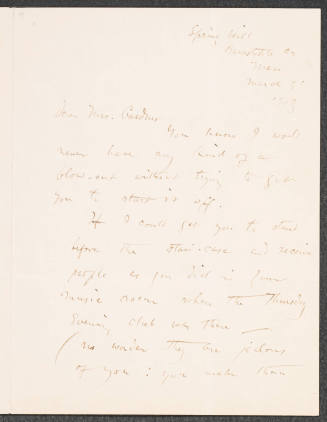 Spring Hill
Barnstable Co
Mass
March 5
1903
Dear Mrs. Gardner
You know I would
never have any kind of a
blow-out without trying to get
you to start it off.
If I could get you to stand
before the stair-case and receive
people as you did in your
music room when the Thursday
Evening club was there —
(no wonder they are jealous
of you: you make them